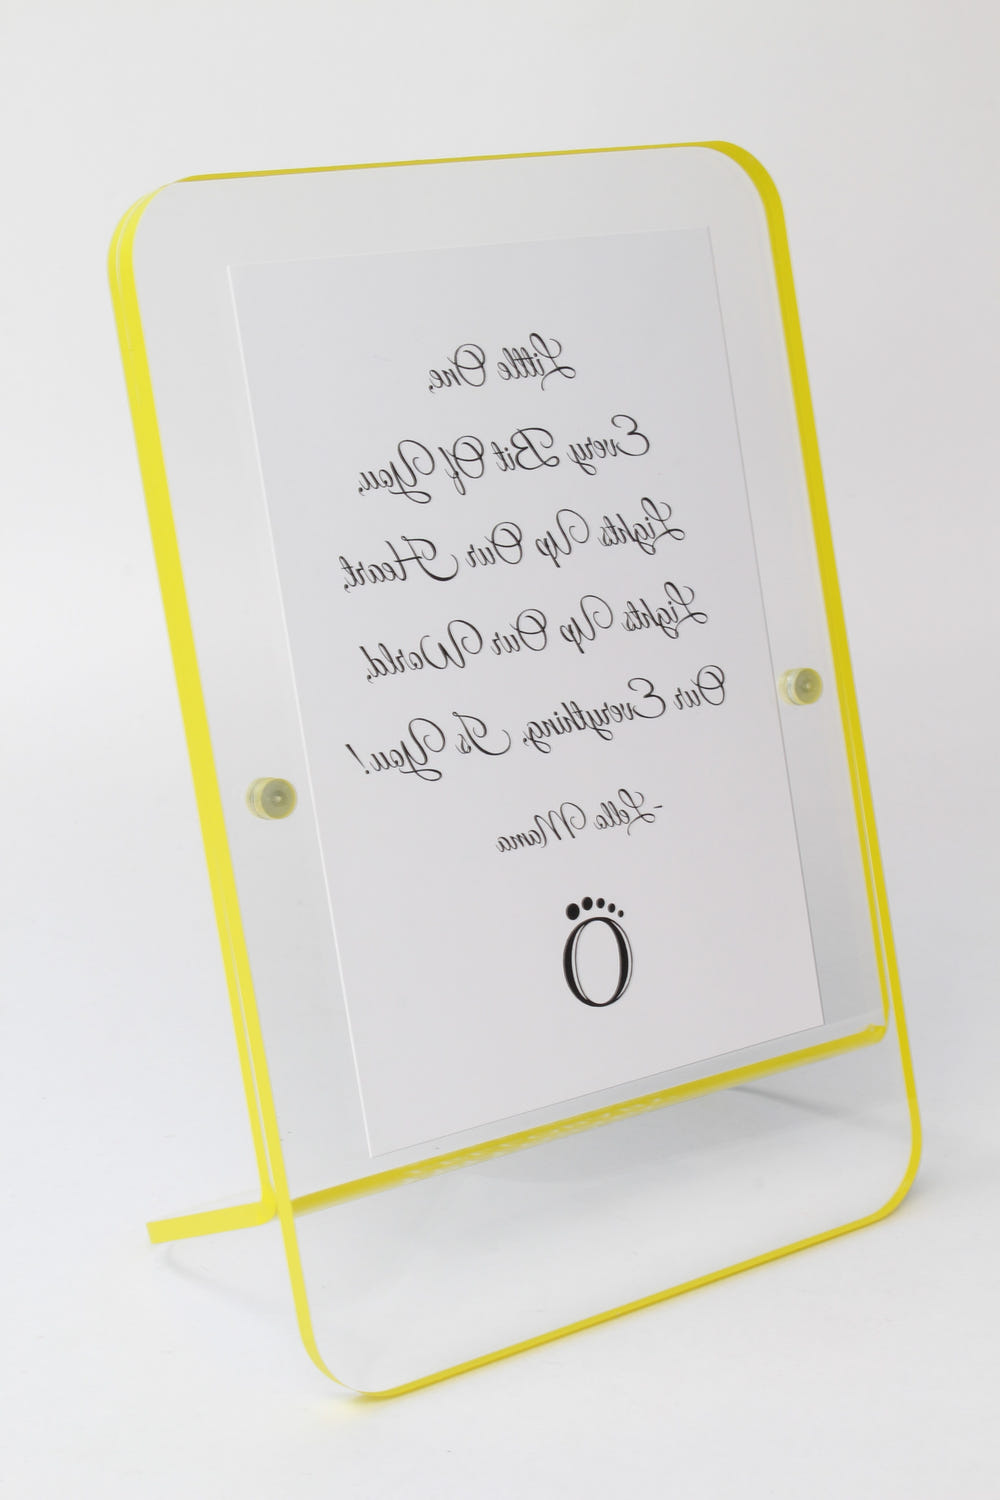 Little One,
Every Bit Of You,
Lights Up Our Heart,
Lights Up Our World,
Our Everything, Is You!
-Lella Mama